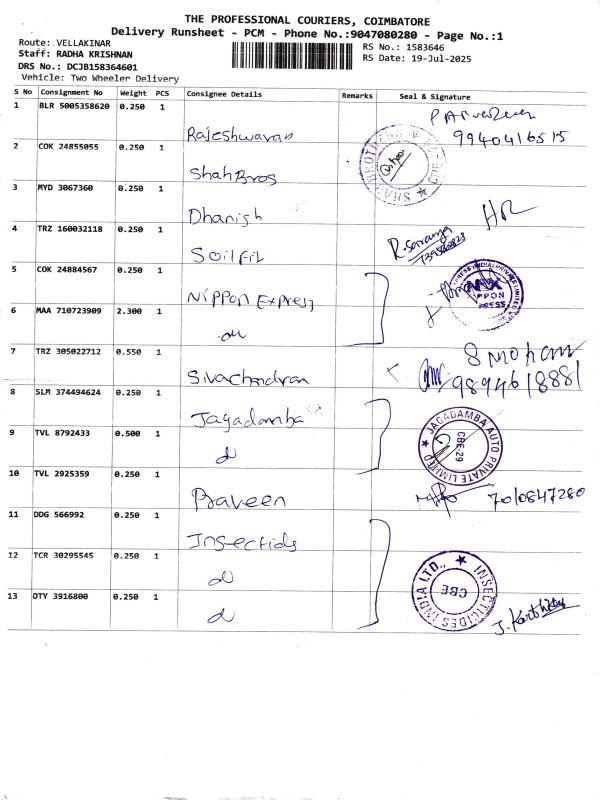 THE PROFESSIONAL COURIERS, COIMBATORE
Delivery Runsheet - PCM - Phone No.:9047080280 - Page No.:1
Route: VELLAKINAR
RS No.: 1583646
Staff: RADHA KRISHNAN
RS Date: 19-Jul-2025
DRS No.: DCJB158364601
Vehicle: Two Wheeler Delivery
S No Consignment No Weight PCS Consignee Details Remarks Seal & Signature
1 BLR 5005358620 0.250 1 Rajeshwaran
9940416515
2 COK 24855055 0.250 1 Shah Bros
SHAH BROTHERS CBE
3 MYD 3067360 0.250 1 Dhanish HR
4 TRZ 160032118 0.250 1 Soilfit R. Saranya
5 COK 24884567 0.250 1 Nippon Express
NIPPON EXPRESS
6 MAA 710723909 2.300 1 do
7 TRZ 305022712 0.550 1 Sivachandran
S Mohan
9894618881
8 SLM 374494624 0.250 1 Jagadamba
JAGADAMBA AUTO PRIVATE LIMITED CBE.29
9 TVL 8792433 0.500 1 do
10 TVL 2925359 0.250 1 Praveen 7010847280
11 DDG 566992 0.250 1 Insectids
12 TCR 30295545 0.250 1 do
INSECTICIDES INDIA LTD., CBE
13 OTY 3916800 0.250 1 do